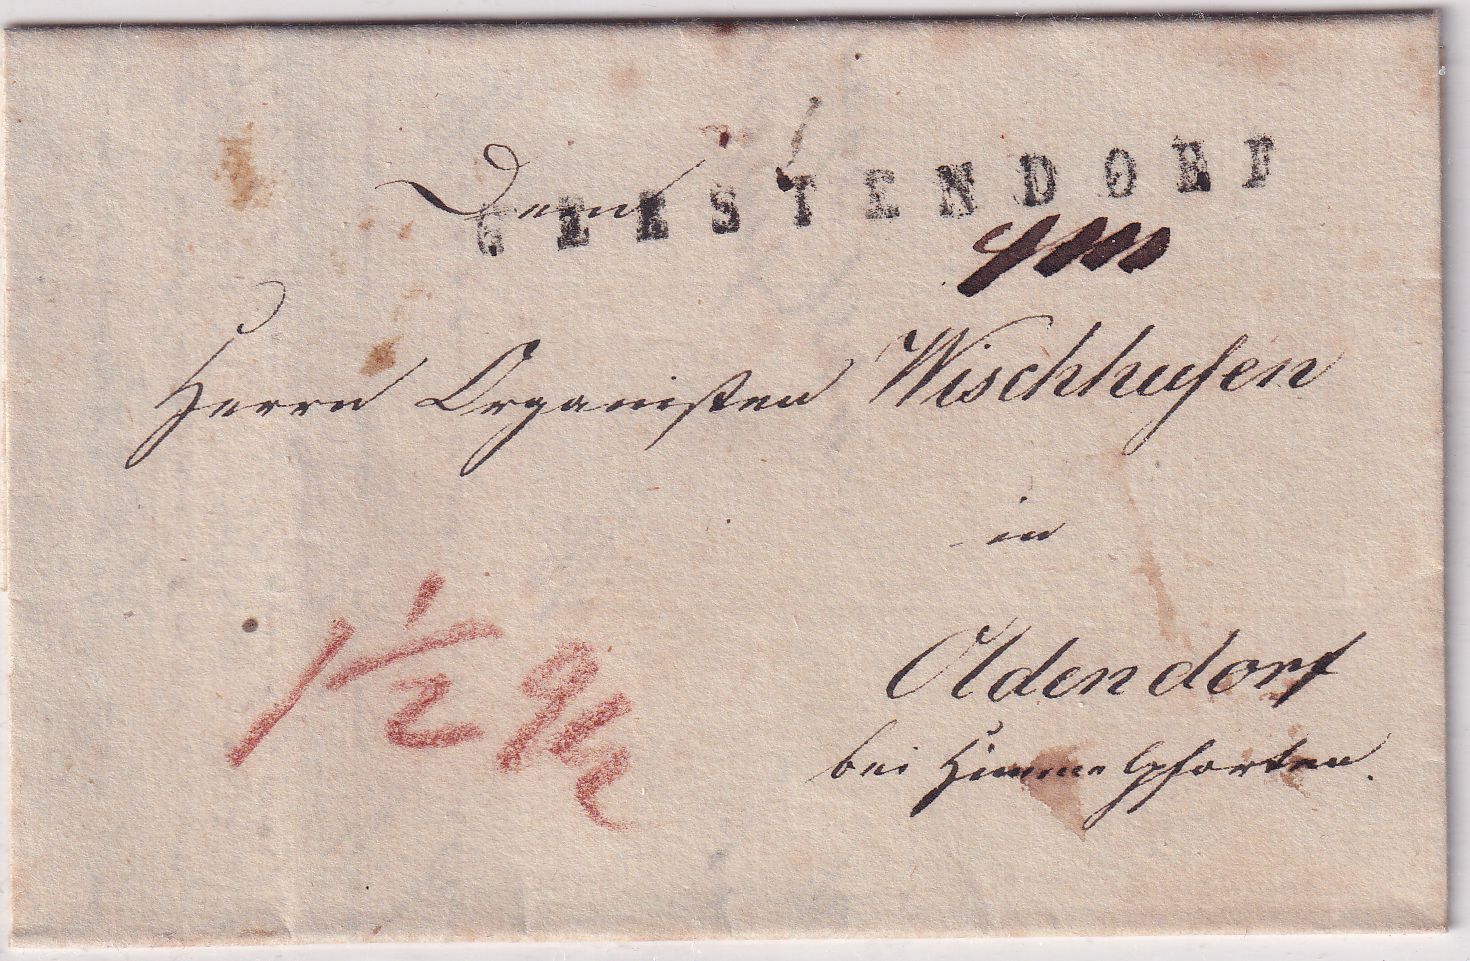 Dem
GEESTENDORF
Herrn Organisten Wischhusen
in
Oldendorf
bei Himmelpforten.
1 1/2